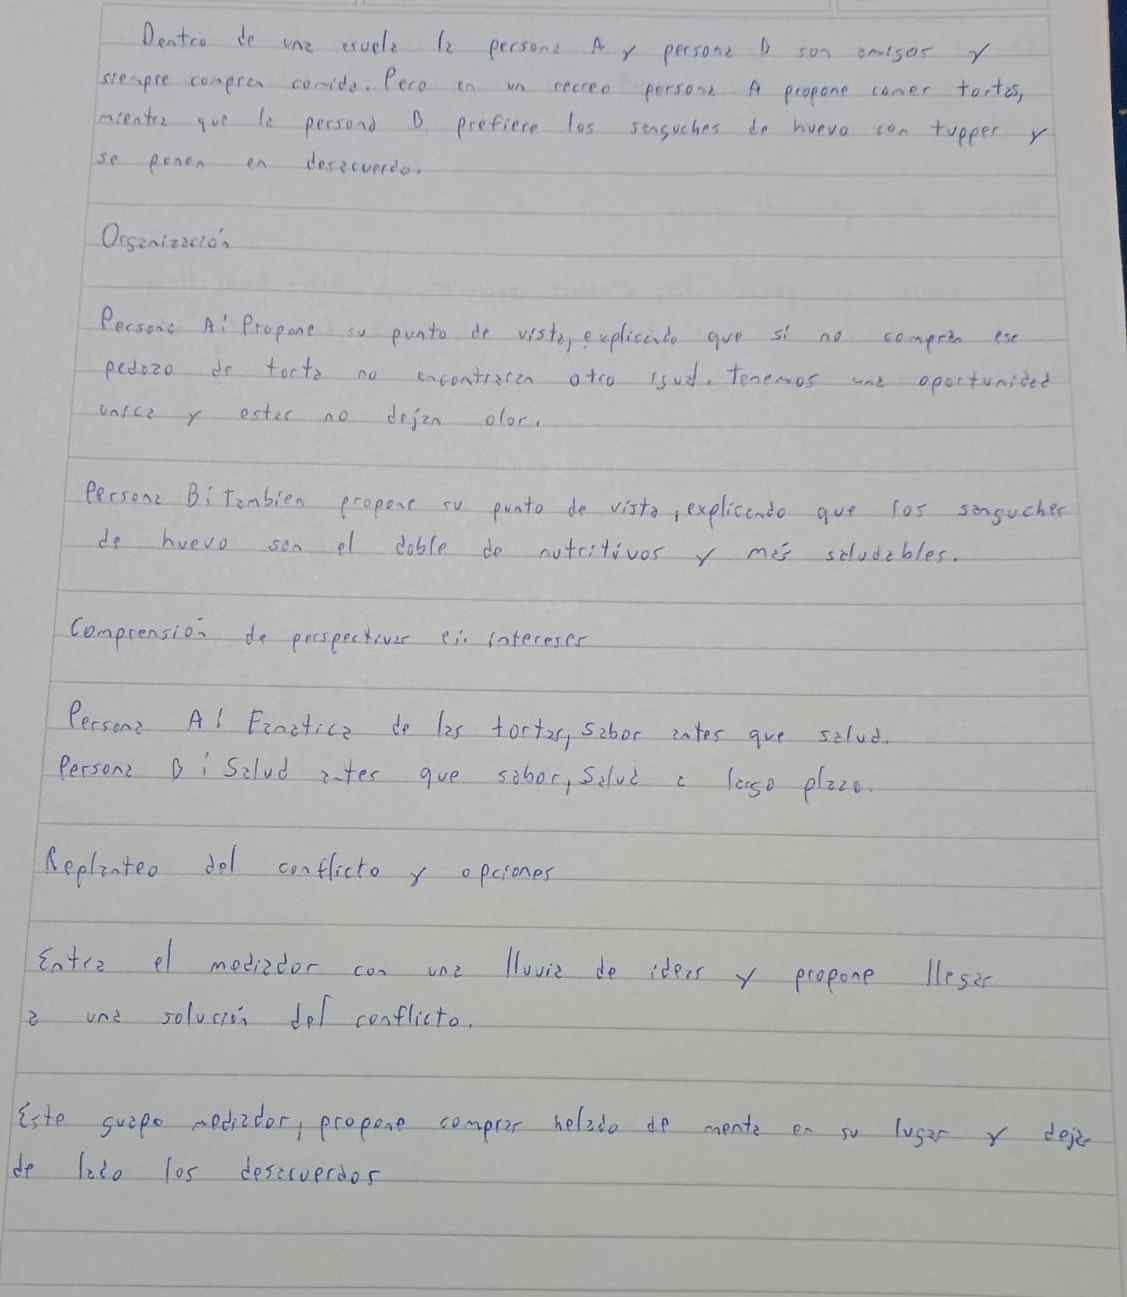 Dentro de una escuela la persona A y persona B son amigos y
siempre compran comida. Pero en un recreo persona A propone comer tortas,
mientra que la persona B prefiere los sanguches de huevo con tupper y
se ponen en desacuerdo.
Organización
Persona A: Propone su punto de vista, explicando que si no compran ese
pedazo de torta no encontraran otro igual. Tenemos una oportunidad
unica y estas no dejan olor.
Persona B: Tambien propone su punto de vista, explicando que los sanguches
de huevo son el doble de nutritivos y más saludables.
Comprensión de perspectivas e intereses
Persona A: Fanatica de las tortas, Sabor antes que salud.
Persona B: Salud antes que sabor, Salud a largo plazo.
Replanteo del conflicto y opciones
Entra el mediador con una lluvia de ideas y propone llegar
a una solución del conflicto.
Este guapo mediador, propone comprar helado de menta en su lugar y dejar
de lado los desacuerdos